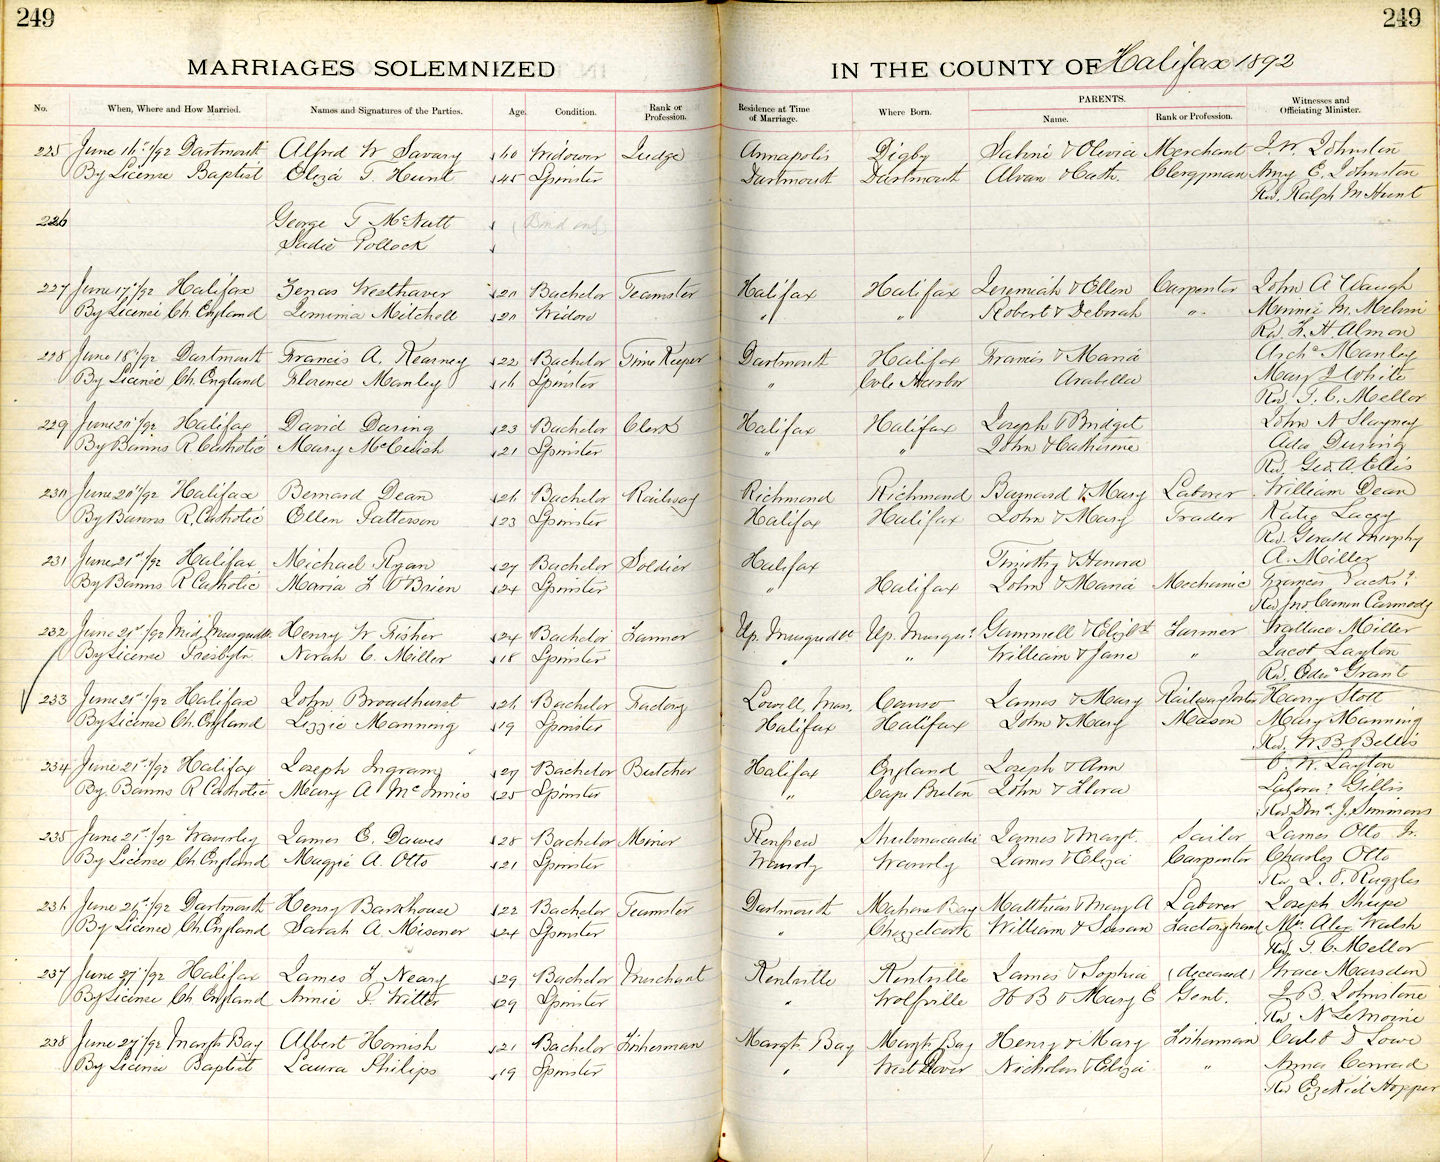 249
249
MARRIAGES SOLEMNIZED IN THE COUNTY OF Halifax 1892
No. When, Where and How Married. Names and Signatures of the Parties. Age. Condition. Rank or Profession. Residence at Time of Marriage. Where Born. PARENTS. Name. Rank or Profession. Witnesses and Officiating Minister.
225 June 16th/92 Dartmouth Alfred W Savary 60 Widower Judge Annapolis Digby Sabine & Olivia Merchant J. W. Johnston
By License Baptist Eliza T Hunt 45 Spinster Dartmouth Dartmouth Alvan & Cath. Clergyman Amy E. Johnston
Rev. Ralph M Hunt
226 George T McNutt (Bond only)
Sadie Pollock
227 June 17th/92 Halifax Zenas Westhaver 20 Bachelor Teamster Halifax Halifax Jeremiah & Ellen Carpenter John A Waugh
By License Ch. England Jemima Mitchell 20 Widow " " Robert & Deborah " Minnie M.
Rev H. A. Almon
228 June 18th/92 Dartmouth Francis A. Kearney 22 Bachelor Time Keeper Dartmouth Halifax Francis & Maria Archd Manley
By License Ch. England Florence Manley 16 Spinster " Cole Harbor Arabella Mary J White
Rev. T. C. Mellor
229 June 20th/92 Halifax David Daring 23 Bachelor Clerk Halifax Halifax Joseph & Bridget John N
By Banns R. Catholic Mary McCuish 21 Spinster " " John & Catherine Ada During
Rev. Geo. A Ellis
230 June 20th/92 Halifax Bernard Dean 26 Bachelor Railway Richmond Richmond Barnard & Mary Laborer William Dean
By Banns R. Catholic Ellen Patterson 23 Spinster Halifax Halifax John & Mary Trader Katie Lacey
Rev. Gerald Murphy
231 June 21st/92 Halifax Michael Ryan 27 Bachelor Soldier Halifax Timothy & Honora A. Miller
By Banns R Catholic Maria F O'Brien 24 Spinster " Halifax John & Maria Mechanic Frances
Rev Jno Carmody
232 June 21st/92 Mid. Musquodt. Henry W Fisher 24 Bachelor Farmer Up. Musquodt Up. Musqut Gammell & Elizbt Farmer Wallace Miller
By License Presbytn Norah C. Miller 18 Spinster " " William & Jane " Jacob Layton
Rev. Edwd Grant
233 June 21st/92 Halifax John Broadhurst 26 Bachelor Factory Lowell, Mass. Canso James & Mary Railway Porter Harry Stott
By License Ch. England Lizzie Manning 19 Spinster Halifax Halifax John & Mary Mason Mary Manning
Rev. W B Bellis
234 June 21st/92 Halifax Joseph Ingram 27 Bachelor Butcher Halifax England Joseph & Ann W. Layton
By Banns R Catholic Mary A McInnis 25 Spinster " Cape Breton John & Flora Gillis
Rev J. Simmons
235 June 21st/92 Waverley James E. Dawes 28 Bachelor Miner Renfrew Shubenacadie James & Margt. Sailor James Otto Jr.
By License Ch England Maggie A. Otto 21 Spinster Waverly Waverly James & Eliza Carpenter Charles Otto
Rev. Ruggles
236 June 21st/92 Dartmouth Henry Barkhouse 22 Bachelor Teamster Dartmouth Mahone Bay Matthias & Mary A Laborer Joseph Sharpe
By License Ch. England Sarah A. Misener 24 Spinster " Chezzetcook William & Susan Factory hand Mrs. Alex Walsh
Rev T. C. Mellor
237 June 27th/92 Halifax James F Neary 29 Bachelor Merchant Kentville Kentville James & Sophia (deceased) Grace Marsden
By License Ch England Annie P. Witter 29 Spinster " Wolfville H B & Mary E Gent. J. B. Johnstone
Rev N LeMoine
238 June 27th/92 Margts Bay Albert Hornish 21 Bachelor Fisherman Margts. Bay Margts Bay Henry & Mary Fisherman Caleb D Lowe
By License Baptist Laura Philips 19 Spinster " West Dover Nicholas & Eliza " Annas Conrad
Rev Ezekiel Hopper